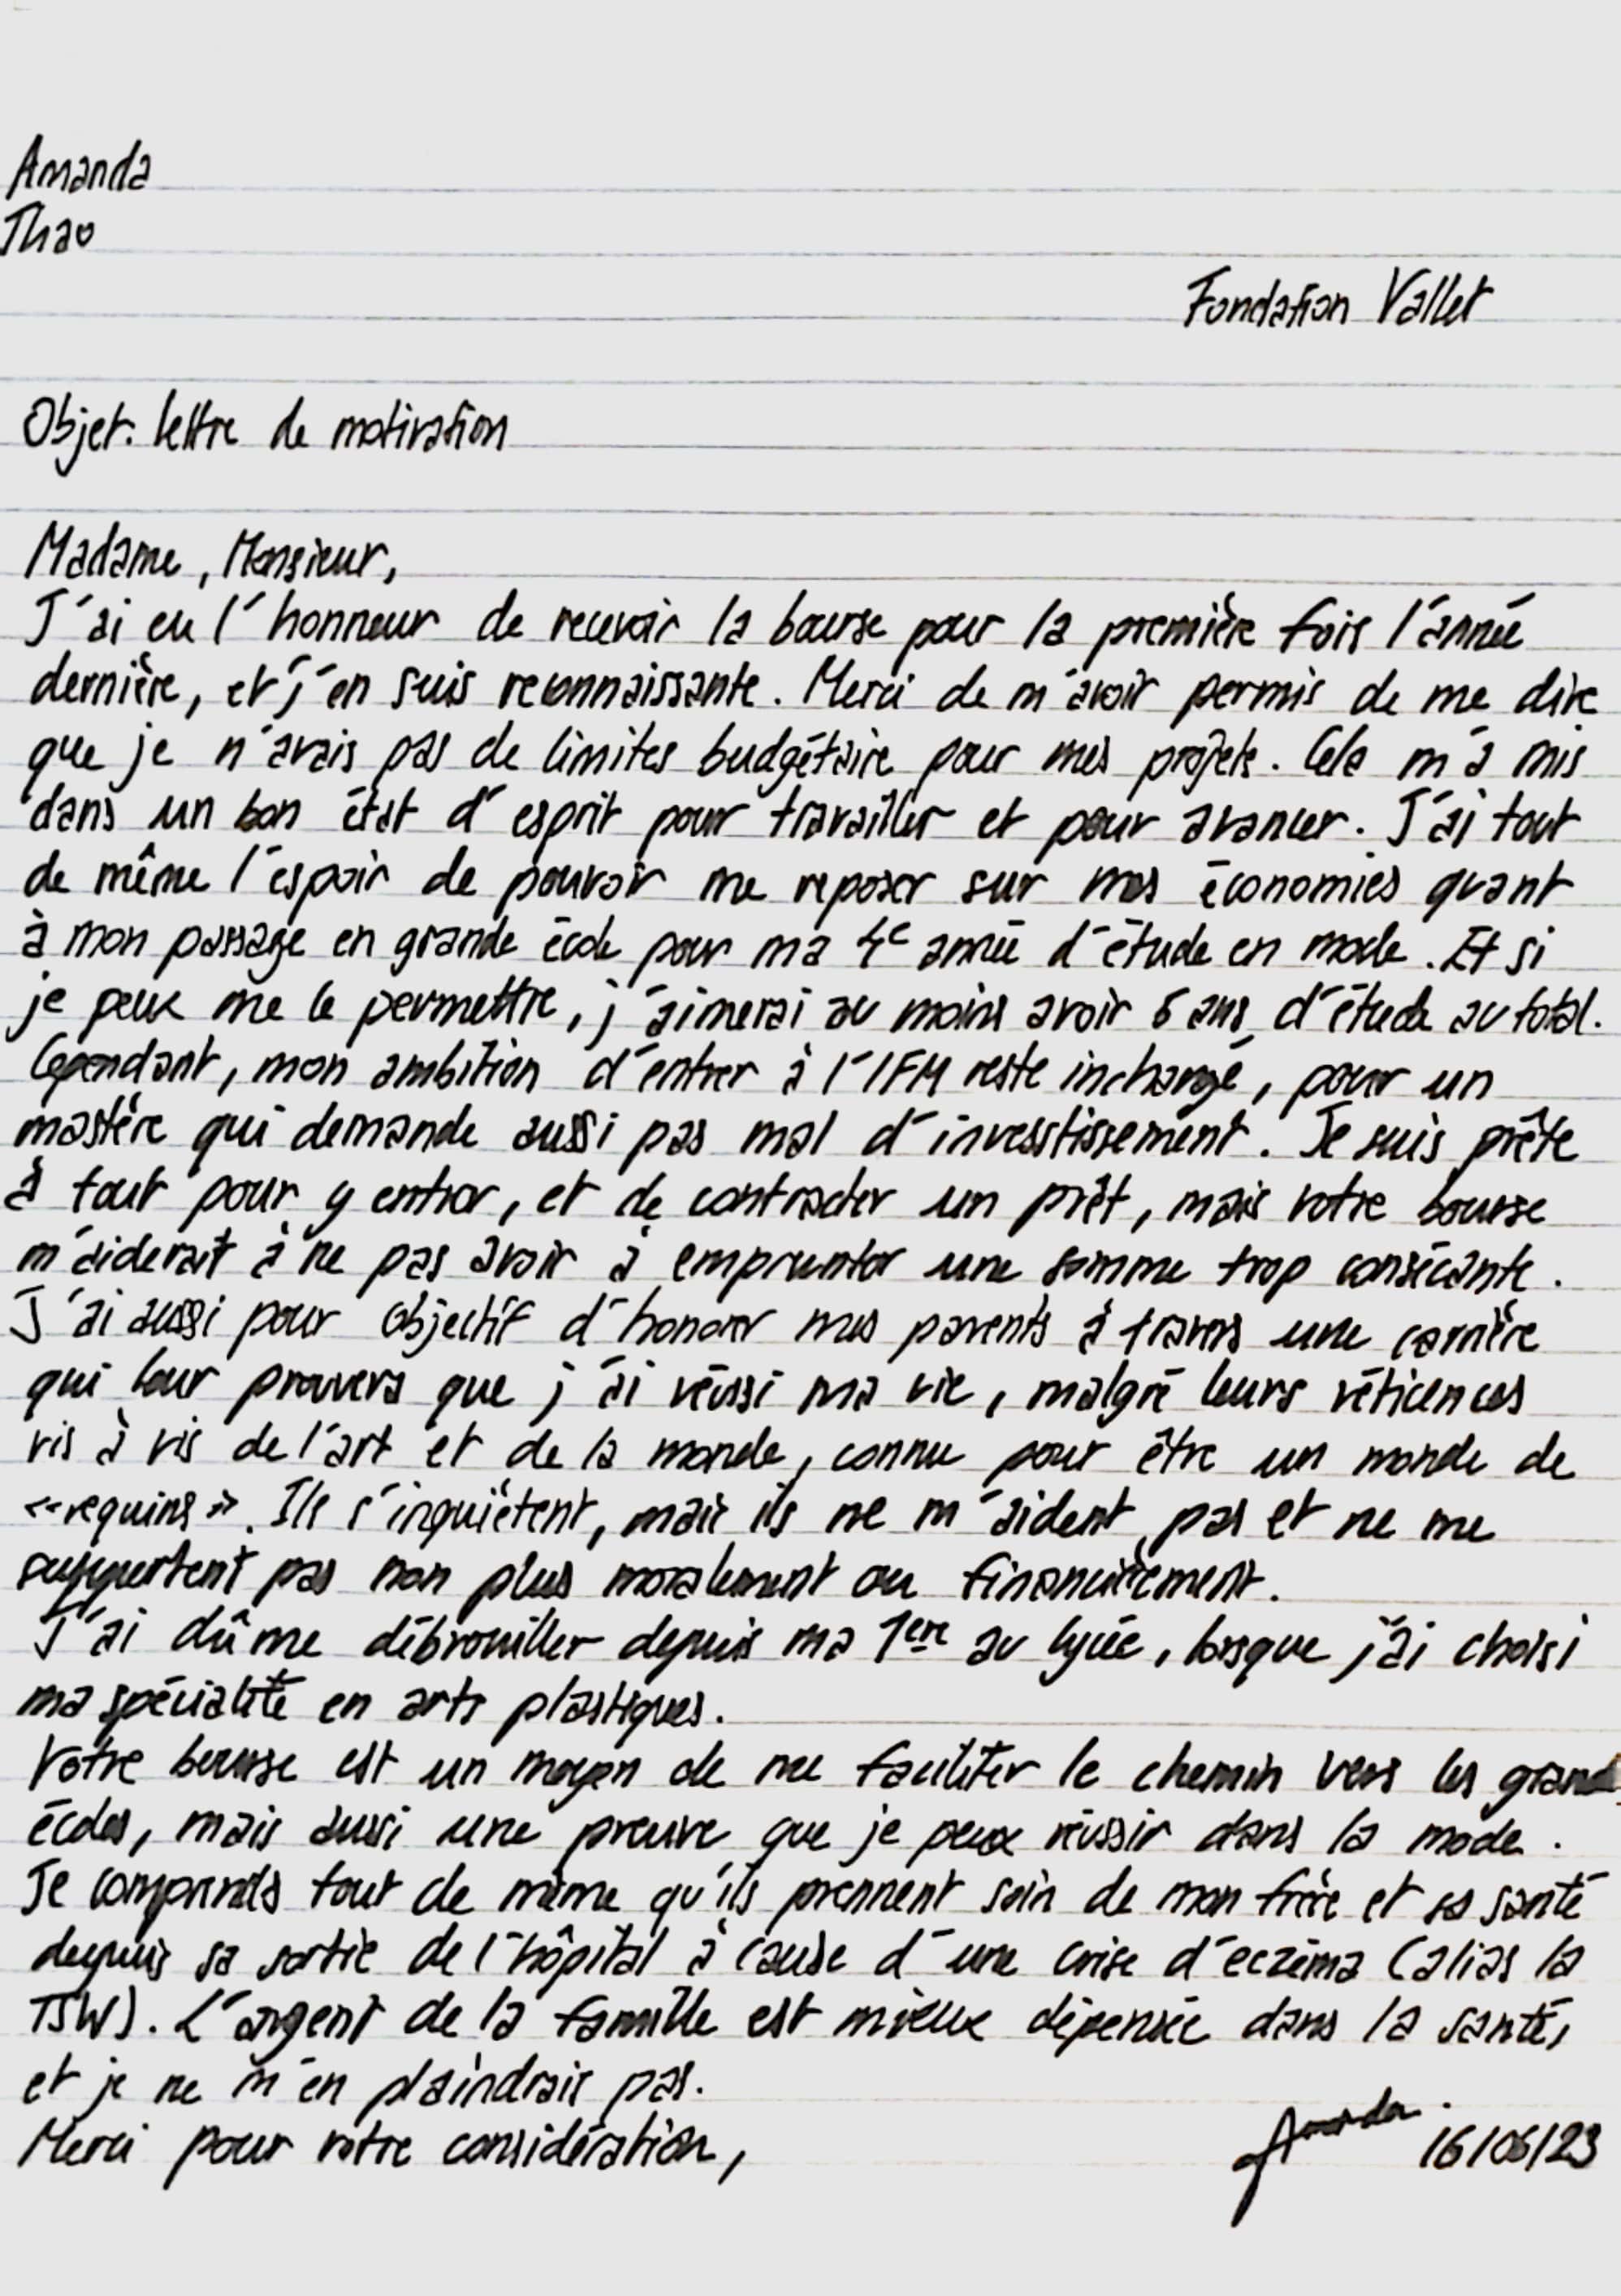 Amanda
Thao
Fondation Vallet
Objet: lettre de motivation
Madame, Monsieur,
J'ai eu l'honneur de recevoir la bourse pour la première fois l'année
dernière, et j'en suis reconnaissante. Merci de m'avoir permis de me dire
que je n'avais pas de limites budgétaire pour mes projets. Cela m'a mis
dans un bon état d'esprit pour travailler et pour avancer. J'ai tout
de même l'espoir de pouvoir me reposer sur mes économies quant
à mon passage en grande école pour ma 4e année d'étude en mode. Et si
je peux me le permettre, j'aimerai au moins avoir 5 ans d'étude au total.
Cependant, mon ambition d'entrer à l'IFM reste inchangé, pour un
mastère qui demande aussi pas mal d'invesstissement. Je suis prête
à tout pour y entrer, et de contracter un prêt, mais votre bourse
m'aiderait à ne pas avoir à emprunter une somme trop consécante.
J'ai aussi pour objectif d'honorer mes parents à travers une carrière
qui leur prouvera que j'ai réussi ma vie, malgré leurs réticences
vis à vis de l'art et de la monde, connu pour être un monde de
«requins». Ils s'inquiètent, mais ils ne m'aident pas et ne me
supportent pas non plus moralement ou financièrement.
J'ai dû me débrouiller depuis ma 1ere au lycée, lorsque j'ai choisi
ma spécialité en arts plastiques.
Votre bourse est un moyen de me faciliter le chemin vers les grandes
écoles, mais aussi une preuve que je peux réussir dans la mode.
Je comprends tout de même qu'ils prennent soin de mon frère et sa santé
depuis sa sortie de l'hôpital à cause d'une crise d'eczéma (alias la
TSW). L'argent de la famille est mieux dépensée dans la santé,
et je ne m'en plaindrais pas.
Merci pour votre considération,
Amanda
16/06/23